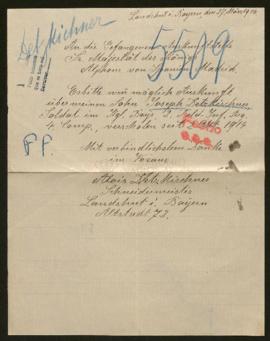 Landshut i. Bayern, den 27. März 1916
Detzkirchner
An die Gefangenen
Sr. Majestät des Königs
Alphons von Spanien Madrid.
5509
Erbitte wo möglich Auskunft
über meinen Sohn Joseph Detzkirchner
Soldat im Kgl. Bayr. Inf. Reg.
4. Comp., verschollen seit 1914
FF.
Mit verbindlichstem Danke
im Voraus
Alois Detzkirchner
Schneidermeister
Landshut i. Bayern
Altstadt 73.